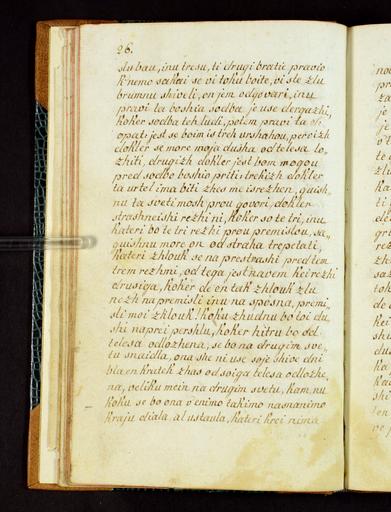 26.
slu bau, inu tresu, ti drugi bratie pravio
k'nemo sakai se vi toku boite, vi ste zlu
brumnu shiveli, en jem odgovari, inu
pravi ta boshia sodba je use dergazhi,
koker sodba teh ludi, potem pravi ta of-
opat: jest se boim is treh urshahou, pervizh
dokler se more moja dusha od telesa lo,
zhiti, drugizh dokler jest bom mogou
pred sodbo boshio priti, trekizh dokler
ta urtel ima biti zhes me isrezhen, guish,
nu ta sveti mosh prou govori, dokler
strashneishi rezhi ni, koker so te tri, inu
kateri bo te tri rezhi prou premislou, sa,,
guishnu more on od straha trepetati,
kateri zhlouk se na prestrashi pred tem
trem rezhni, od tega jest navem kei rezhi
drusiga, koker de en tak zhlouk zlu
nezh na premisli inu na sposna, premi,
sli moi zklouk! koku zhudnu bo toi du,
shi naprei pershlu, koker hitru bo del
telesa odlozhena, se bo na drugim sve,
tu snaidla, ona she ni use soje shive dni
bla en kratek zhas od soiga telesa odlozhe,
na, veliku mein na drugim svetu, kam, nu
koku se bo ona v'enimo takimo nasnanimo
kraju djala, al ustaula, kateri krei nima